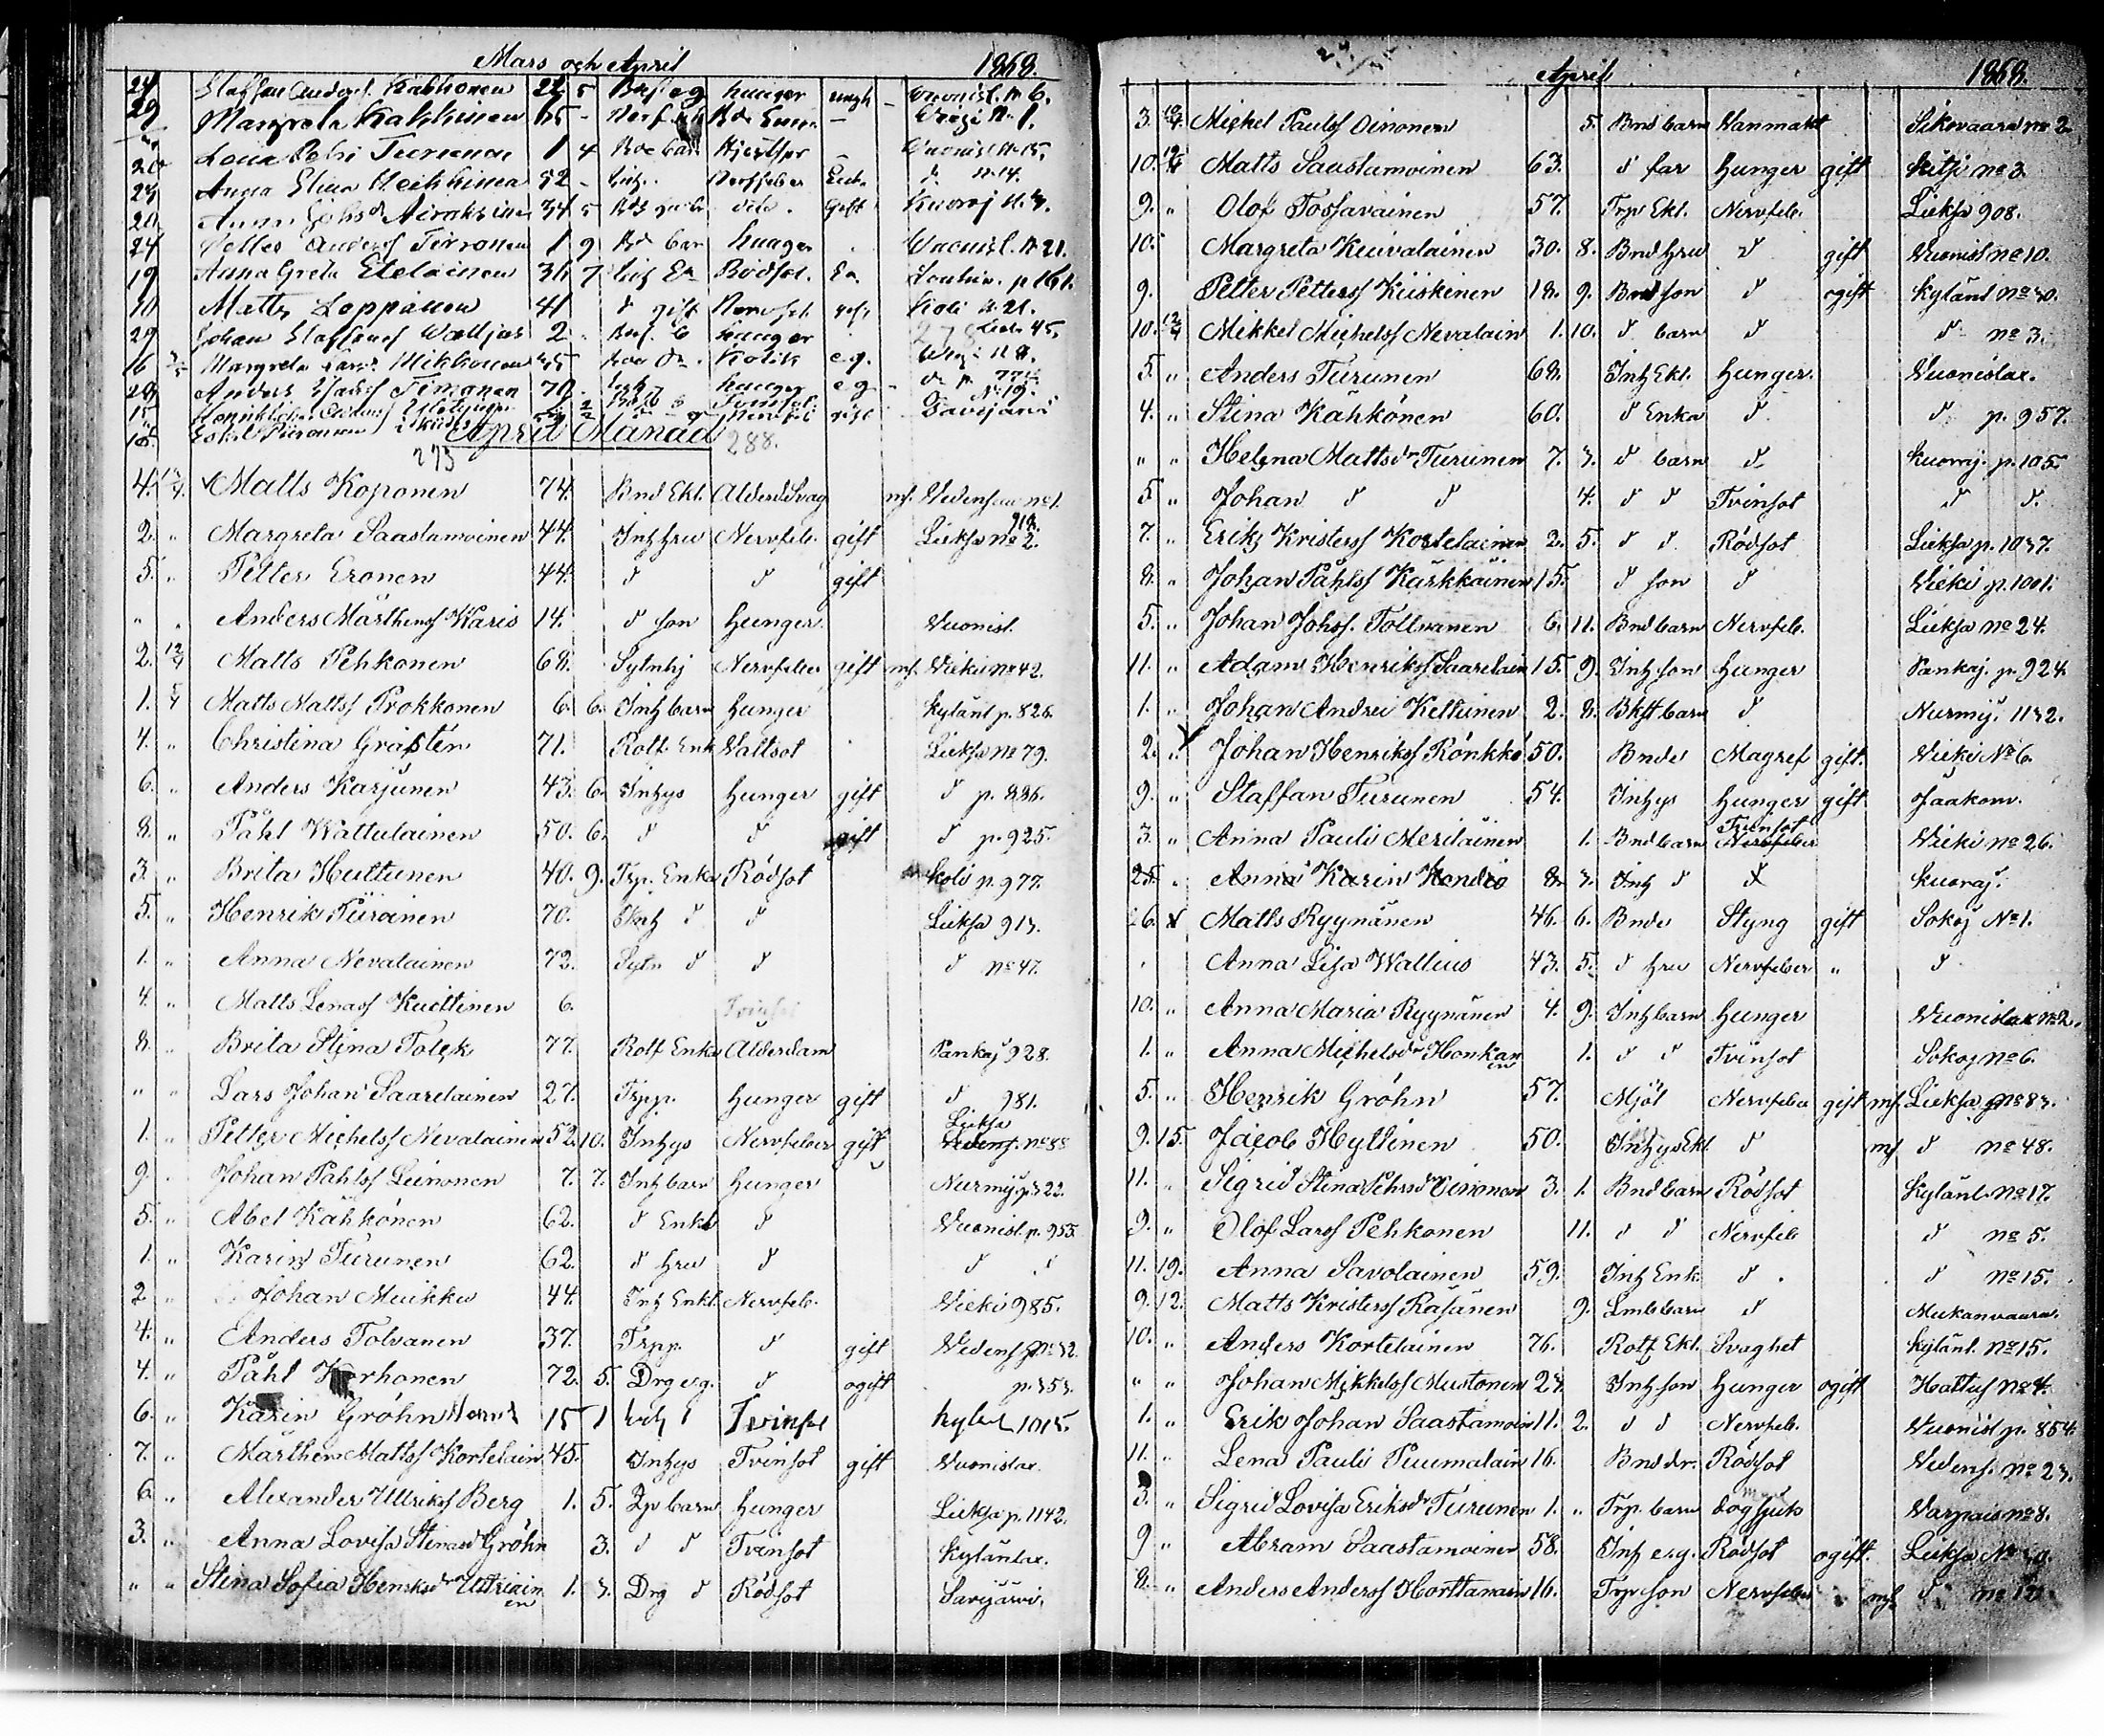 Mars och April 1868.
24 Staffan Anders. Kähkonen 22 5 hunger Vuonisl. No 6.
29 Margreta Kakkinen 65 - No 1.
20 Turunen 1 4 Vuonisl No 15.
24 Anna Elisa Heikkinen 52 - Nerffeber d No 14.
20 Anna Johsdr Airaksinen 34 5 gift Kuoraj
24 Petter Anderss Tirronen 1 9 Bd bar hunger Vuonisl. No 21.
19 Anna Greta Eteläinen 36 7 Inh Ea Rödsot. Ea p 161.
10 Matts Loppönen 41 d gift Nervfeb. Koli No 21.
29 Johan Staffans Walljus 2. hunger 45.
16 Margreta Mikkonen 45 Kolik e.g.
28 Anders Isaks Timonen 70 Inh hunger e g -
15
18 Piironen gift Savijärvi
April Månad 288.
273
4. 13/4. Matts Koponen 74. Bnd Ekl. Alderd.Svag mf. Vedensuu No 1.
2. " Margreta Saastamoinen 44. Inh hru Nervfeb. gift Lieksa No 2. 918.
5. " Petter Eronen 44. d d gift
" " Anders Mårthenss Karis 14. d son Hunger. Vuonisl.
2. 12/4 Matts Pehkonen 68. Sytnhj Nervfeber gift mf. Vieki No 42.
1. 5/4 Matts Mattss Prokkonen 6. 6. Inh barn Hunger Kylänl p. 826.
4. " Christina Grästén 71. Rotf. Enk Vattsot Lieksa No 79.
6. " Anders Karjunen 43. 6. Inhys Hunger gift d p. 886.
8. " Påhl Wattulainen 50. 6. d d gift d p. 925.
3. " Brita Huttunen 40. 9. Trp. Enka Rödsot Koli p. 977.
5. " Henrik Piirainen 70. Inh d d Lieksa 913.
1. " Anna Nevalainen 72. Sytn d d d No 47.
4. " Matts Lenass Kuittinen 6. Tvinsot
8. " Brita Stina Tolck 77. Rotf Enka Alderdom Pankaj 928.
" " Lars Johan Saarelainen 27. Trpp. Hunger gift d 981.
1. " Petter Michelss Nevalainen 52. 10. Inhys Nervfeber gift Lieksa Vedensj. No 88
9. " Johan Påhlss Leinonen 7. 7. Inh barn Hunger Nurmij p. 322.
5. " Abel Kähkönen 62. d Enkl d Vuonisl. p. 955.
1. " Karin Turunen 62. d hru d d d
2 " Johan Muikku 44. Inh Enkl. Nervfeb. Vieki 985.
4. " Anders Tolvanen 37. Trpp. d gift Vedensj No 32.
4. " Påhl Korhonen 72. 5. Drg e.g. d ogift p. 353.
6. " Karin Gröhn 15 1 Inh Tvinsot Kyl 1015.
7. " Mårthen Mattss Kortelain 45. Inhys Tvinsot gift Vuonislax.
6. " Alexander Ullrikss Berg 1. 5. barn Hunger Lieksa p. 1142.
3. " Anna Lovisa Stinasd Gröhn 3. d d Tvinsot Kylänlax.
" " Stina Sofia Henriksdr Uttriainen 1. 3. Drg d Rödsot Savijärvi.
April 1868.
3. 12/4. Michel Paulss Oinonen 5. Bnd barn Vanmakt Sikovaara No 2
10. 12/4 Matts Saastamoinen 63. d far Hunger gift Kitsi No 3.
9. " Olof Tossavainen 57. Trp Ekl. Nervfeb. Lieksa 908.
10. " Margreta Kuivalainen 30. 8. Bnd hru d gift Vuonisl No 10.
9. Petter Petterss Kiiskinen 18. 9. Bnd son d ogift Kylänl No 30.
10. 12/4 Mikkel Michelss Nevalain 1. 10. d barn d d No 3.
5. " Anders Turunen 68. Inh Ekl. Hunger. Vuonislax.
4. " Stina Kähkönen 60. d Enka d d p. 957.
" " Helena Mattsdr Turunen 7. 3. d barn d Kuoraj. p. 105.
5 " Johan d d 4. d d Tvinsot d d.
7. " Erik Kristerss Kortelainen 2. 5. d d Rödsot Lieksa p. 1037.
8. " Johan Påhlss Karkkainen 15. d son d Vieki p. 1001.
5. " Johan Johss. Tollvanen 6. 11. Bnd barn Nervfeb. Lieksa No 24.
11. " Adam Henrikss Saarelain 15. 9. Inh son Hunger Pankaj. p. 924.
1. " Johan Andrei Kettunen 2. 8. Bkst barn d Nurmij. 1132.
2. " Johan Henrikss Rönkkö 50. Bnde Magref gift. Vieki No 6.
9. " Staffan Turunen 54. Inhys Hunger gift Jaakom.
3. " Anna Pauls Meriläinen 1. Bnd barn Tvinsot Nervfeber Vieki No 26.
25. " Anna Karin Kondio 8. 3. Inh d d Kuoraj.
26. Matts Ryynänen 46. 6. Bnde Styng gift Sokoj No 1.
Anna Lisa Wallius 43. 5. d hru Nervfeber " d
10. " Anna Maria Ryynänen 4. 9. Inh barn Hunger Vuonislax No 2.
1. " Anna Michelsdr Honkanen 1. d d Tvinsot Sokoj No 6.
5. " Henrik Gröhn 57. Mjöl Nervfeber gift mf. Lieksa No 83.
9. 15. Jacob Hyttinen 50. Inhys Ekl d mf d No 48.
11. " Sigrid Stina Oinonen 3. 1. Bnd barn Rödsot Kylänl. No 17.
9. " Olof Larss Pehkonen 11. d d Nervfeb d No 5.
11. 19. Anna Savolainen 59. Inh Enk. d. d No 15.
9. 12. Matts Kristerss Räsänen 9. Lmb barn d Mukanvaara.
10. " Anders Kortelainen 76. Rotf Ekl. Svaghet Kylänl. No 15.
" " Johan Mikkelss Mustonen 23. Inh son Hunger ogift Hattus No 4.
1. " Erik Johan Saastamoin 11. 2. d d Nervfeb. Vuonisl p. 854.
11. " Lena Pauls Puumalain 16. Bnd dr. Rödsot Vedens. No 23.
3. " Sigrid Lovisa Eriksdr Turunen 1. " Trp. barn Varpais No 8.
9 " Abram Saastamoinen 58. Inh e.g. Rödsot ogift. Lieksa
8. " Anders Anderss Horttanain 16. Trp son Nervfeber mf. d